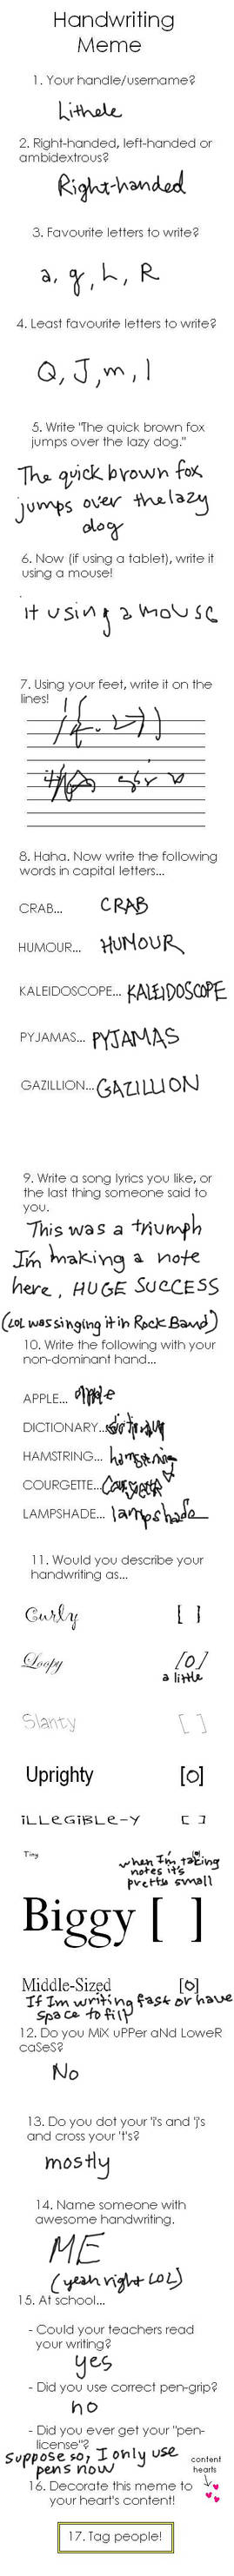 Handwriting
Meme
1. Your handle/username?
Lithele
2. Right-handed, left-handed or
ambidextrous?
Right-handed
3. Favourite letters to write?
a, g, h, R
4. Least favourite letters to write?
Q, J, m, l
5. Write "The quick brown fox
jumps over the lazy dog."
The quick brown fox
jumps over the lazy
dog
6. Now (if using a tablet), write it
using a mouse!
it using a mouse
7. Using your feet, write it on the
lines!
8. Haha. Now write the following
words in capital letters...
CRAB... CRAB
HUMOUR... HUMOUR
KALEIDOSCOPE... KALEIDOSCOPE
PYJAMAS... PYJAMAS
GAZILLION... GAZILLION
9. Write a song lyrics you like, or
the last thing someone said to
you.
This was a triumph
I'm making a note
here, HUGE SUCCESS
(LOL was singing it in Rock Band)
10. Write the following with your
non-dominant hand...
APPLE... apple
DICTIONARY... dictionary
HAMSTRING... hamstring
COURGETTE... Courgette
LAMPSHADE... lampshade
11. Would you describe your
handwriting as...
Curly [ ]
Loopy [O]
a little
Slanty [ ]
Uprighty [O]
iLLeGiBLe-Y [ ]
Tiny [O]
when I'm taking
notes it's
pretty small
Biggy [ ]
Middle-Sized [O]
If Im writing fast or have
space to fill
12. Do you MiX uPPer aNd LoweR
caSeS?
No
13. Do you dot your 'i's and 'j's
and cross your 't's?
mostly
14. Name someone with
awesome handwriting.
ME
(yeah right LOL)
15. At school...
- Could your teachers read
your writing?
yes
- Did you use correct pen-grip?
no
- Did you ever get your "pen-
license"?
Suppose so, I only use
pens now
content
hearts
16. Decorate this meme to
your heart's content!
17. Tag people!